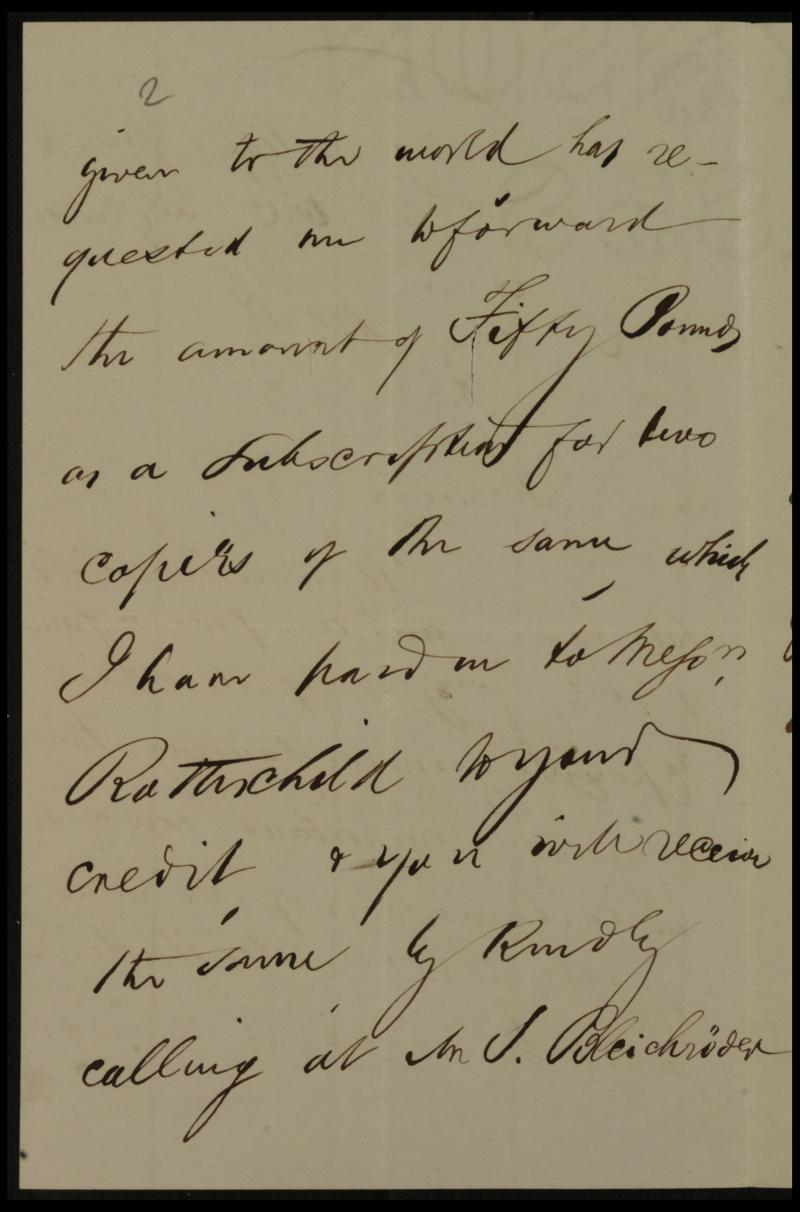 2
given to the world has re-
quested me to forward
the amount of Fifty Pounds
as a Subscription for two
copies of the same which
I have paid in to Messrs
Rothschild to your
credit & you will receive
the same by kindly
calling at Mr S. Bleichröder